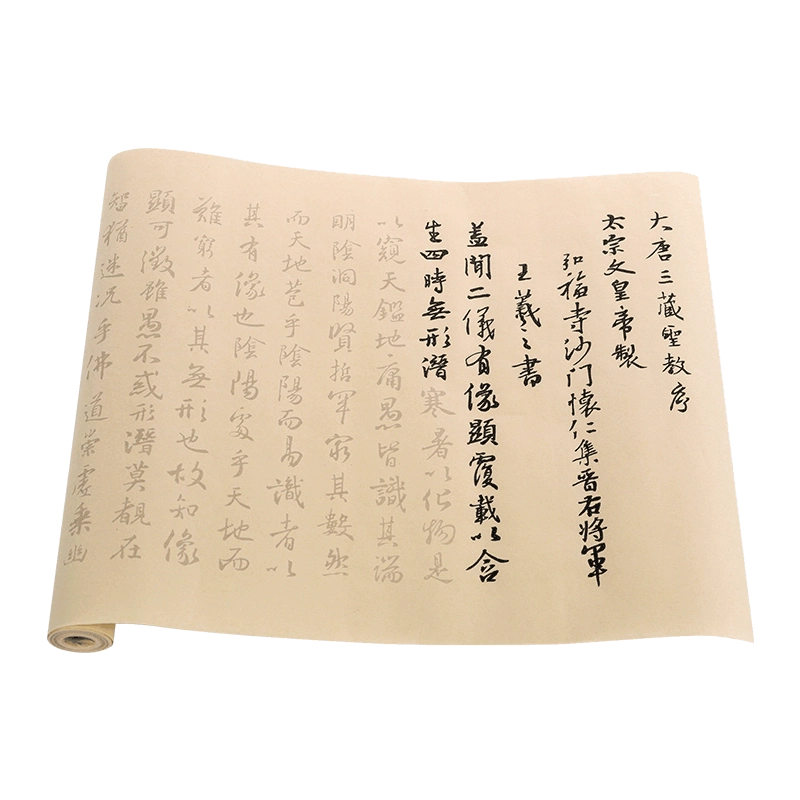 大唐三藏聖教序
太宗文皇帝製
弘福寺沙門懷仁集晉右將軍
王羲之書
盖聞二儀有像顯覆載以含
生四時無形潛寒暑以化物是
以窺天鑑地庸愚皆識其端
明陰洞陽賢哲罕窮其數然
而天地苞乎陰陽而易識者以
其有像也陰陽處乎天地而
難窮者以其無形也故知像
顯可徵雖愚不惑形潛莫覩在
智猶迷況乎佛道崇虛乘幽